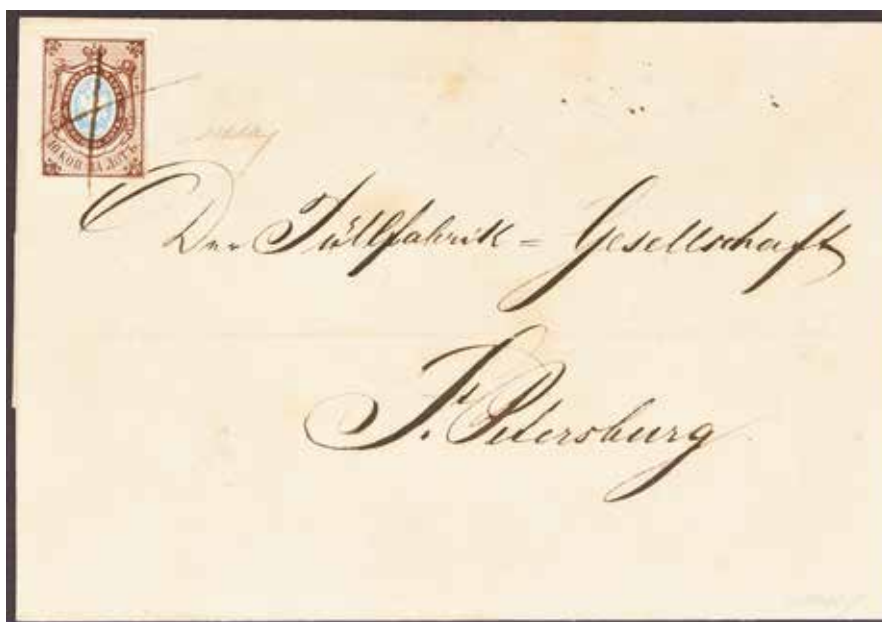 10 КОП. ЗА ЛОТЪ
Der Tüllfabrik = Gesellschaft
St. Petersburg